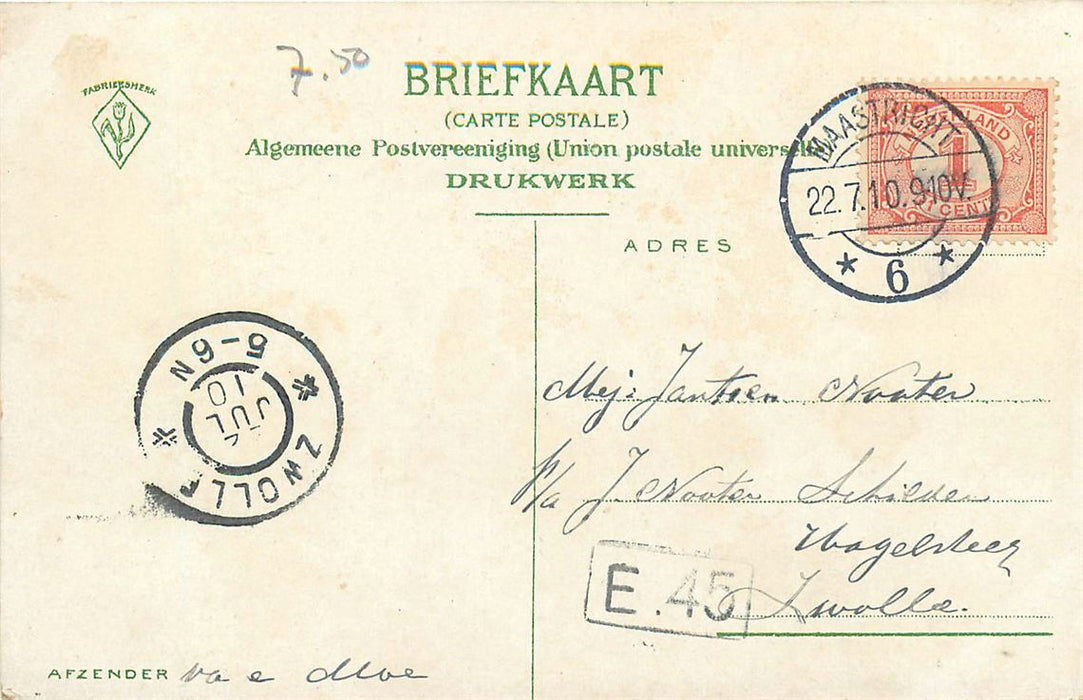 7.50
FABRIEKSMERK
BRIEFKAART
(CARTE POSTALE)
Algemeene Postvereeniging (Union postale universelle)
DRUKWERK
MAASTRICHT
22.7.10.9-10V.
* 6 *
LAND
1
CENT
ADRES
5-6N
10
JUL
ZWOLLE
Mej: Jantsen Nooter
P/a J. Nooter Schilder
Zwolle.
E.45
AFZENDER